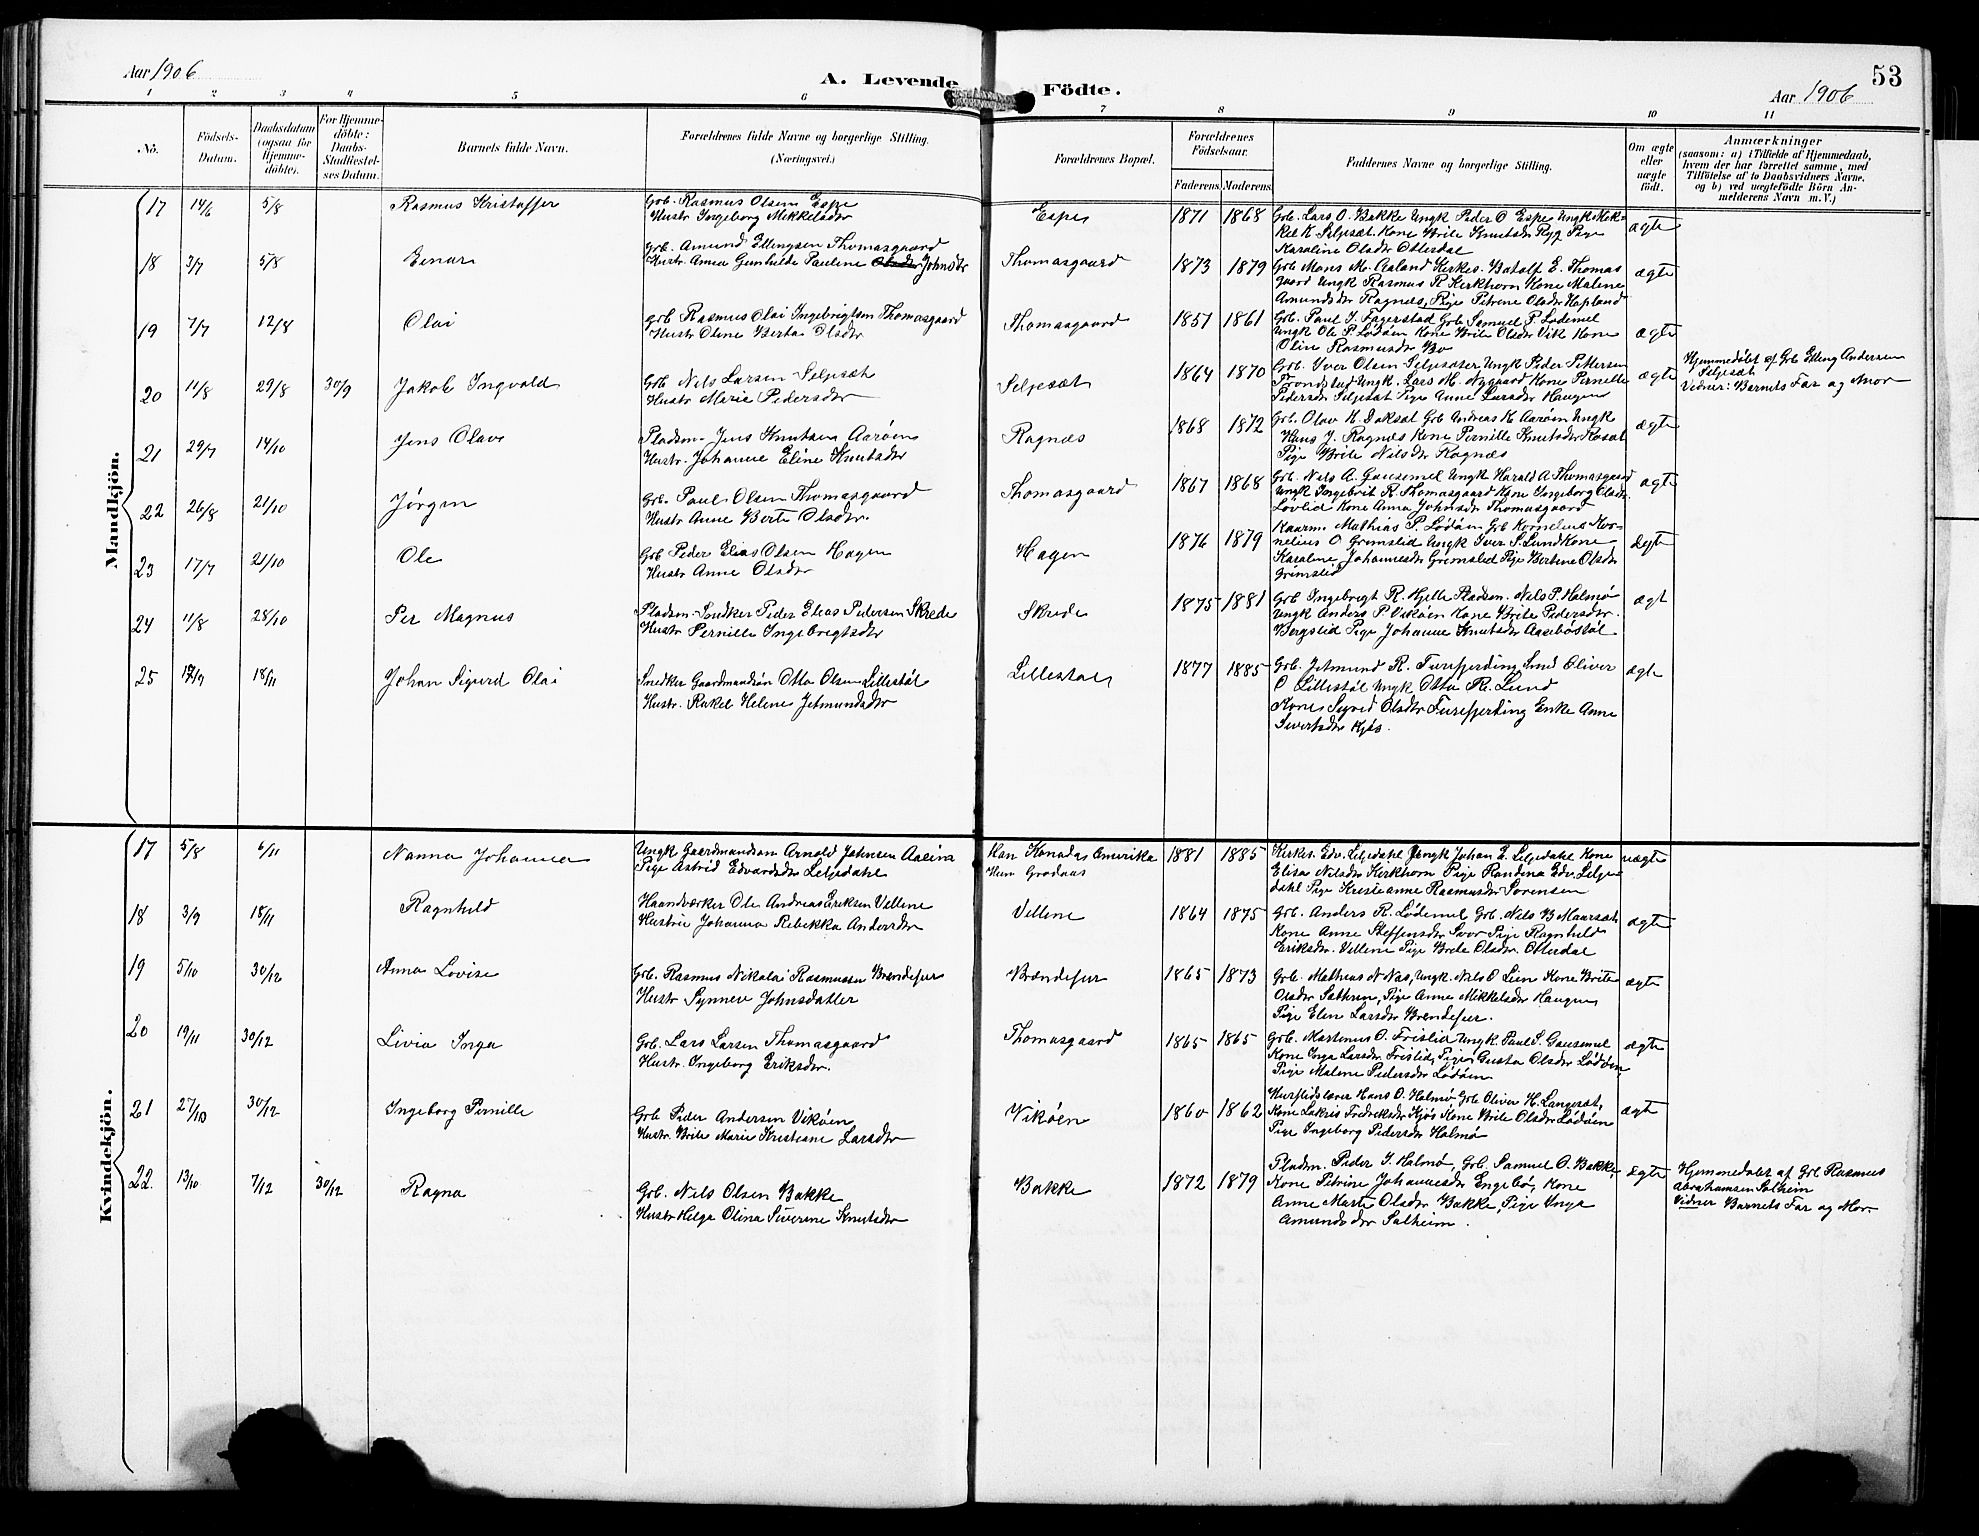 Aar 1906
A. Levende Födte.
53
Aar 1906
1 2 3 4 5 6 7 8 9 10 11
No.
Födsels-Datum.
Daabsdatum (ogsaa for Hjemmedöbte).
For Hjemmedöbte: Daabs-Stadfæstelses Datum.
Barnets fulde Navn.
Forældrenes fulde Navne og borgerlige Stilling. (Næringsvei.)
Forældrenes Bopæl.
Forældrenes Födselsaar.
Faderens. Moderens.
Faddernes Navne og borgerlige Stilling.
Om ægte eller uægte födt.
Anmærkninger
(saasom: a) i Tilfælde af Hjemmedaab, hvem der har forrettet samme, med Tilföielse af to Daabsvidners Navne, og b) ved uægtefödte Börn Anmelderens Navn m.V.)
Mandkjön.
17 14/6 5/8 Rasmus Kristoffer
Grb. Rasmus Olsen Espe
Hustr Ingeborg Mikkelsdtr
Espe 1871 1868
Grb. Lars O. Bakke Ungk Peder O Espe Ungk Mik-
kel K. Seljeset. Kone Brite Knutsdr Ryg Pige
Karoline Olsdr Ottesdal
ægte
18 3/7 5/8 Einar
Grb. Amund Ellingsen Thomasgaard
Hustr. Anna Gunhilde Pauline Johnsdr
Thomasgaard 1873 1879
Grb Mons M. Aaland Kirkes. Batolf E. Thomas
gaard Ungk Rasmus R Kirkhorn Kone Malene
Amundsdr Ragnæs, Pige Petrene Olsdr Hapland
ægte
19 7/7 12/8 Olai
Grb Rasmus Olai Ingebrigtsen Thomasgaard
Hustr Oline Berta Olsdr
Thomasgaard 1857 1861
Grb. Paul J. Fagerstad Grb Samuel P. Lødemel
Ungk Ole P. Lødøen Kone Brite Olsdr Vik Kone
Oline Rasmusdr Bø
ægte
20 11/8 29/8 30/9 Jakob Ingvald
Grb Nils Larsen Seljesæt
Hustr Marie Pedersdr
Seljesæt 1864 1870
Grb. Iver Olsen Seljesæter Ungk Peder Pettersen
Frondstad Ungk. Lars M. Nygaard Kone Pernille
Pedersdr Seljesæt Pige Anne Larsdr Haugen
ægte
Hjemmedøbt af Grb Elling Andersen
Seljesæt
Vidner: Barnets Far og Mor
21 29/7 14/10 Jens Olav
Pladsm. Jens Knutsen Aarøen
Hustr. Johanne Eline Knutsdr
Ragnæs 1868 1872
Grb. Olav H. Doksæt Grb Andreas K. Aarøen Ungk
Hans J. Ragnæs Kone Pernille Knutsdr Rosæt
Pige Brite Nilsdr Ragnæs
ægte
22 26/8 21/10 Jørgen
Grb. Paul Olsen Thomasgaard
Hustr Anne Berte Olsdtr.
Thomasgaard 1867 1868
Grb. Nils A. Gausemel Ungk Harald A. Thomasgaard
Ungk Ingebrit R. Thomasgaard Kone Ingeborg Olsdr
Løvlid Kone Anna Johnsdr Thomasgaard
ægte
23 17/7 21/10 Ole
Grb Peder Elias Olsen Hagen
Hustr Anne Olsdtr
Hagen 1876 1879
Mathias P. Lødøen Grb Kornelius Kor-
nelius O Grimslid Ungk Iver S. Lund Kone
Karoline Johannesdr Grimslid Pige Bertine Olsdr
Grimslid
ægte
24 11/8 28/10 Per Magnus
Pladsm. Snedker Peder Elias Pedersen Skrede
Hustr Pernille Ingebrigtsdtr
Skrede 1875 1881
Grb Ingebrigt R. Hjelle Pladsm. Nils P. Halmø
Ungk Anders P Vikøen Kone Brite Pedersdr.
Bergslid Pige Johanne Knutsdr Aasebøstøl
ægt
25 17/9 18/11 Johan Sigurd Olai
Snedker Gaardmandsøn Otto Olsen Lillestøl
Hustr. Rakel Helene Jetmundsdr
Lillestøl 1877 1885
Grb. Jetmund R. Furefjerding Smed Oliver
O Lillestøl Ungk Otto R. Lund
Kone Sigrid Olsdtr Furefjerding Enke Anne
Sivertsdr Kjøs.
ægte
Kvindekjön.
17 5/8 6/11 Nanna Johanna
Ungk Gaardmandsøn Arnold Johnsen Aaeim
Pige Astrid Edvardsdr Leljedahl
Han Kanadas Amerika
Hun Grodaas
1881 1885
Kirkes. Edv. Leljedahl Ungk Johan E. Leljedahl Kone
Elisa Nilsdr Kirkhorn Pige Randina Edv. Lelje-
dahl Pige Kristianne Rasmusdr Sørensen
uægte
18 3/9 18/11 Ragnhild
Haandværker Ole Andreas Eriksen Vellene
Hustrue Johanna Rebekka Andersdr
Vellene 1864 1875
Grb. Anders R. Lødemel Grb. Nils B Maursæt
Kone Anne Steffensdr Svor Pige Ragnhild
Eriksdr. Vellene Pige Brite Olsdr. Ottesdal
ægte
19 5/10 30/12 Anna Lovise
Grb. Rasmus Nikolai Rasmussen Brendefur
Hustr Synnev Johnsdatter
Brendefur 1865 1873
Grb. Mathias N Nos, Ungk. Nils O Lien Kone Brite
Olsdr Sætren, Pige Anne Mikkelsdr Haugen
Pige Elen Larsdr Brendefur.
ægte
20 19/11 30/12 Livia Inga
Grb. Lars Larsen Thomasgaard
Hustr. Ingeborg Eriksdr.
Thomasgaard 1865 1865
Grb. Martinus O. Frislid Ungk Paul S. Gausemel
Kone Inga Larsdr Frislid, Pige Gusta Olsdr Lødøen,
Pige Malene Pedersdr Lødøen
ægte
21 27/10 30/12 Ingeborg Pernille
Grb Peder Andersen Vikøen
Hustr. Brite Marie Kristiane Larsdr
Vikøen 1860 1862
Husflidslærer Hans O. Halmø Grb Oliver H. Langesæt,
Kone Lakris Fredriksdr Kjøs Kone Brite Olsdr Lødøen
Pige Ingeborg Pedersdr Halmø
ægt
22. 13/10 7/12 30/12 Ragna
Grb. Nils Olsen Bakke
Hustr Helga Olina Siverine Knutsdr
Bakke 1872 1879
Pladsm. Peder J. Halmø, Grb. Samuel O. Bakke,
Kone Petrine Johannesdr Engebø, Kone
Anne Marte Olsdr Bakke, Pige Inga
Amundsdr Solheim.
ægte
Hjemmedøbt af Grb Rasmus
Abrahamsen Solheim
Vidner Barnets Far og Mor.